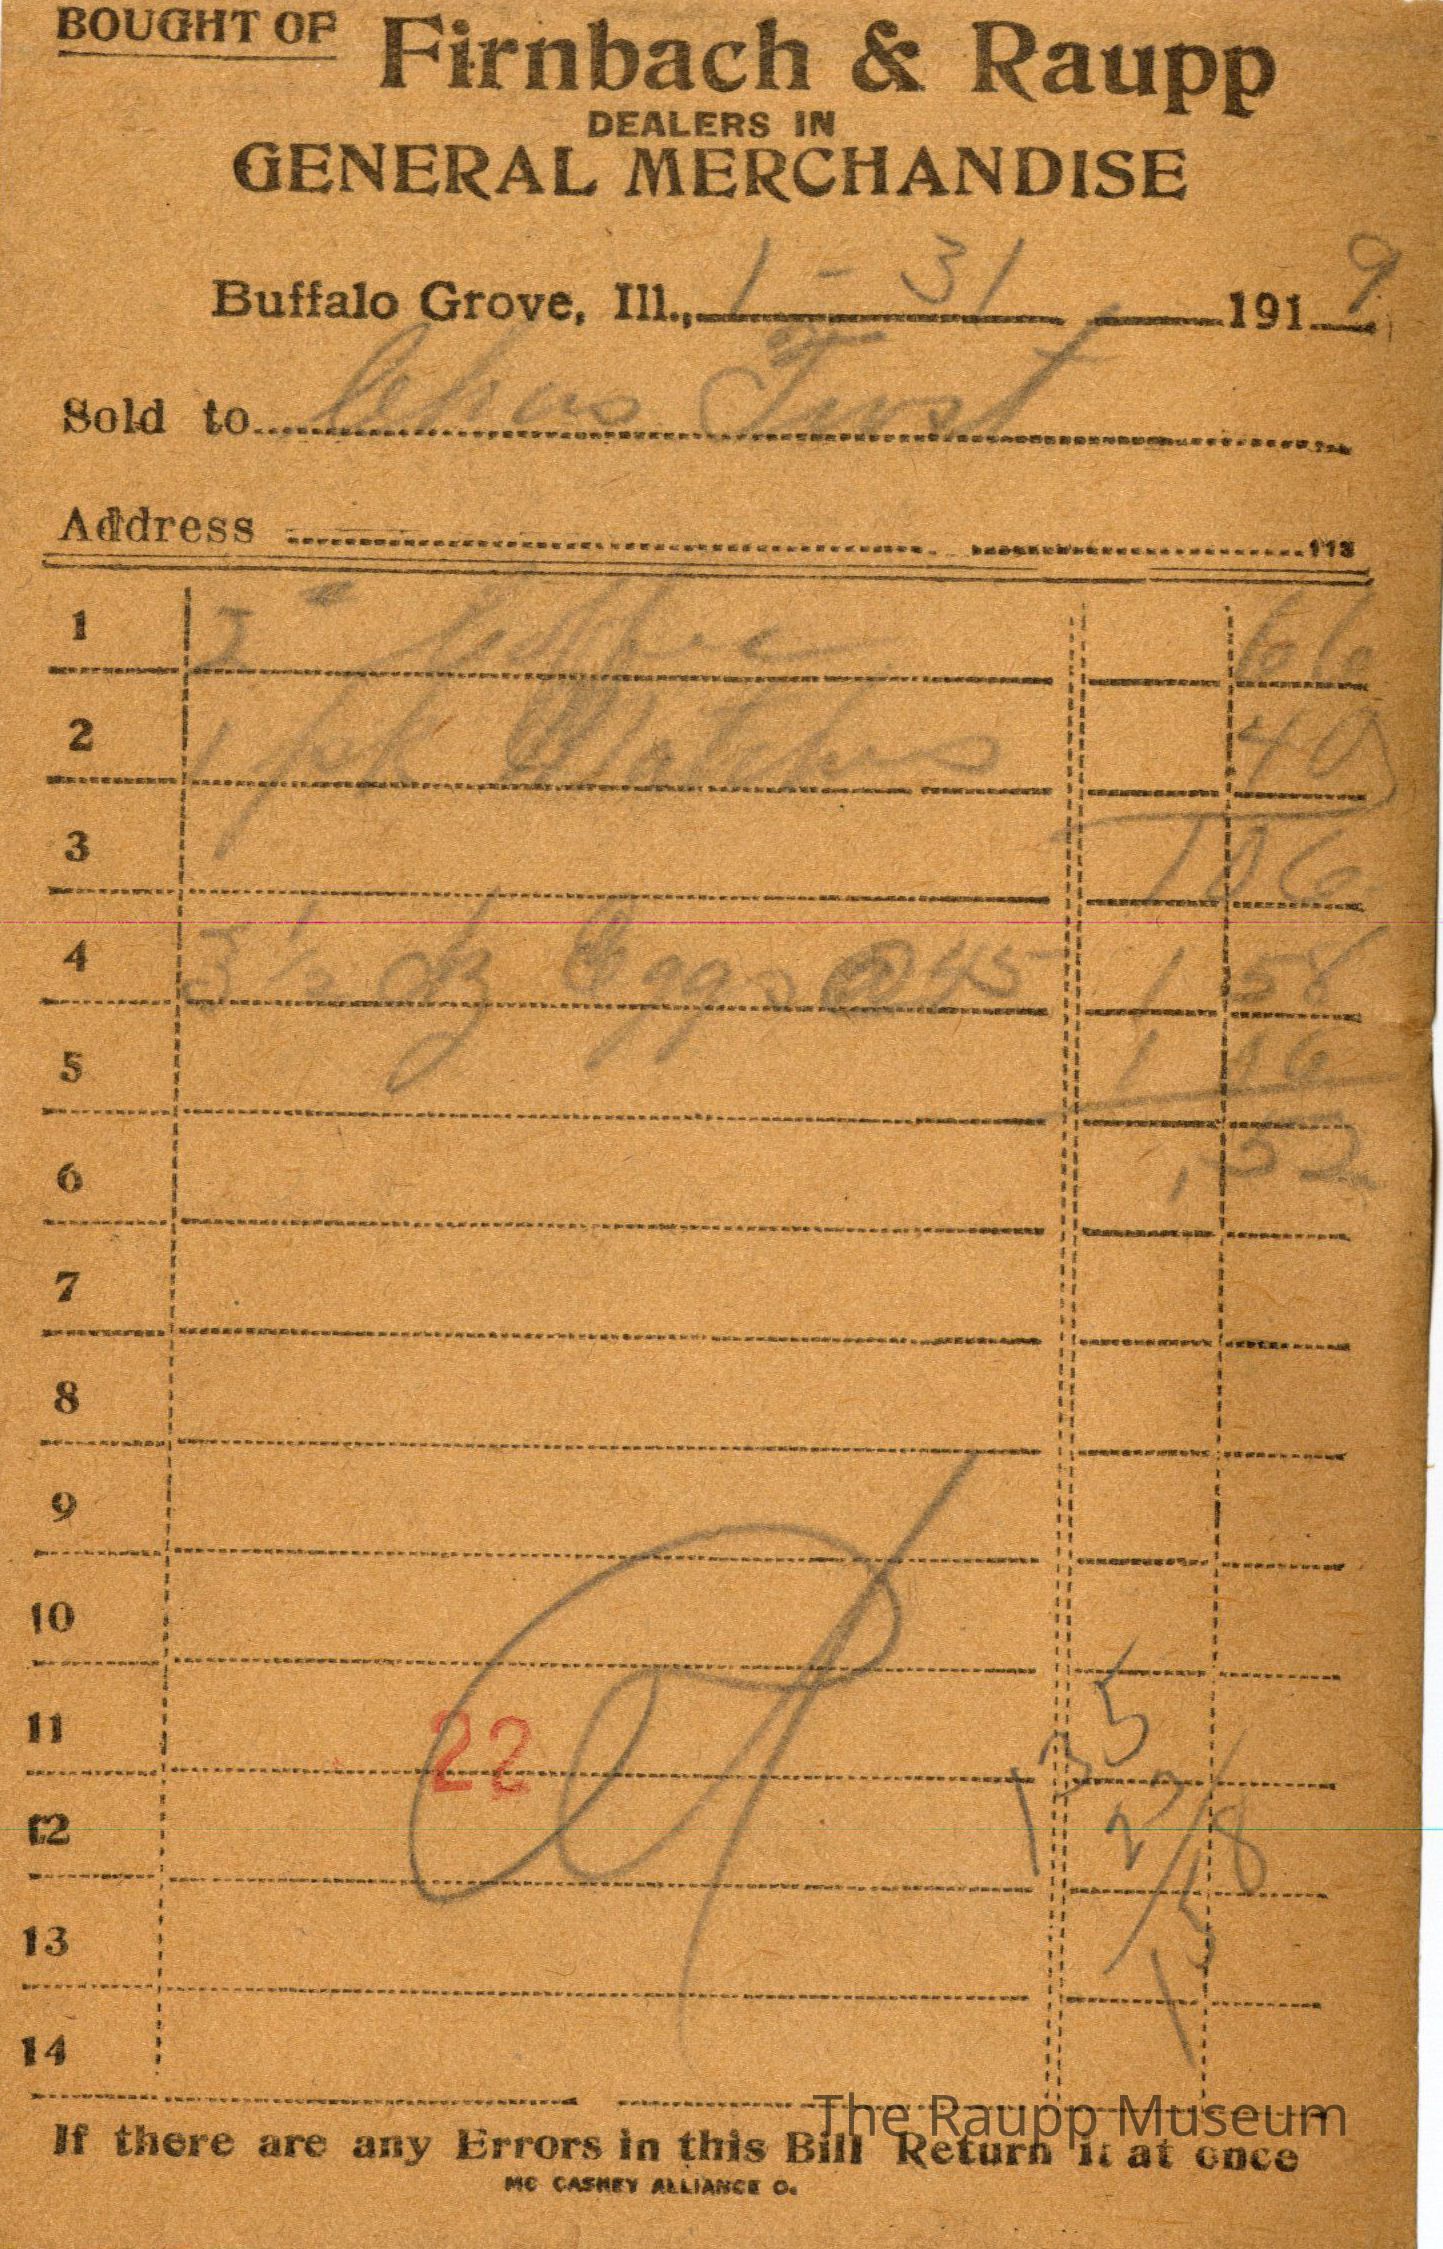 BOUGHT OF Firnbach & Raupp
DEALERS IN
GENERAL MERCHANDISE
Buffalo Grove, Ill., 1-31 1919
Sold to Chas
Address 113
1 3 " Coffee 66
2 1 pk Matches 40
3 1 06
4 3 1/2 dz Eggs @ 45 1 58
5 1 06
6 , 52
7
8
9
10
11 22
12
13
14
5
13
2/8
15
If there are any Errors in this Bill Return it at once
MC CASKEY ALLIANCE O.
The Raupp Museum